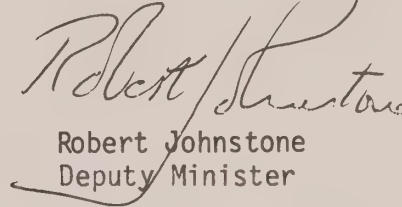 Robert Johnstone
Robert Johnstone
Deputy Minister